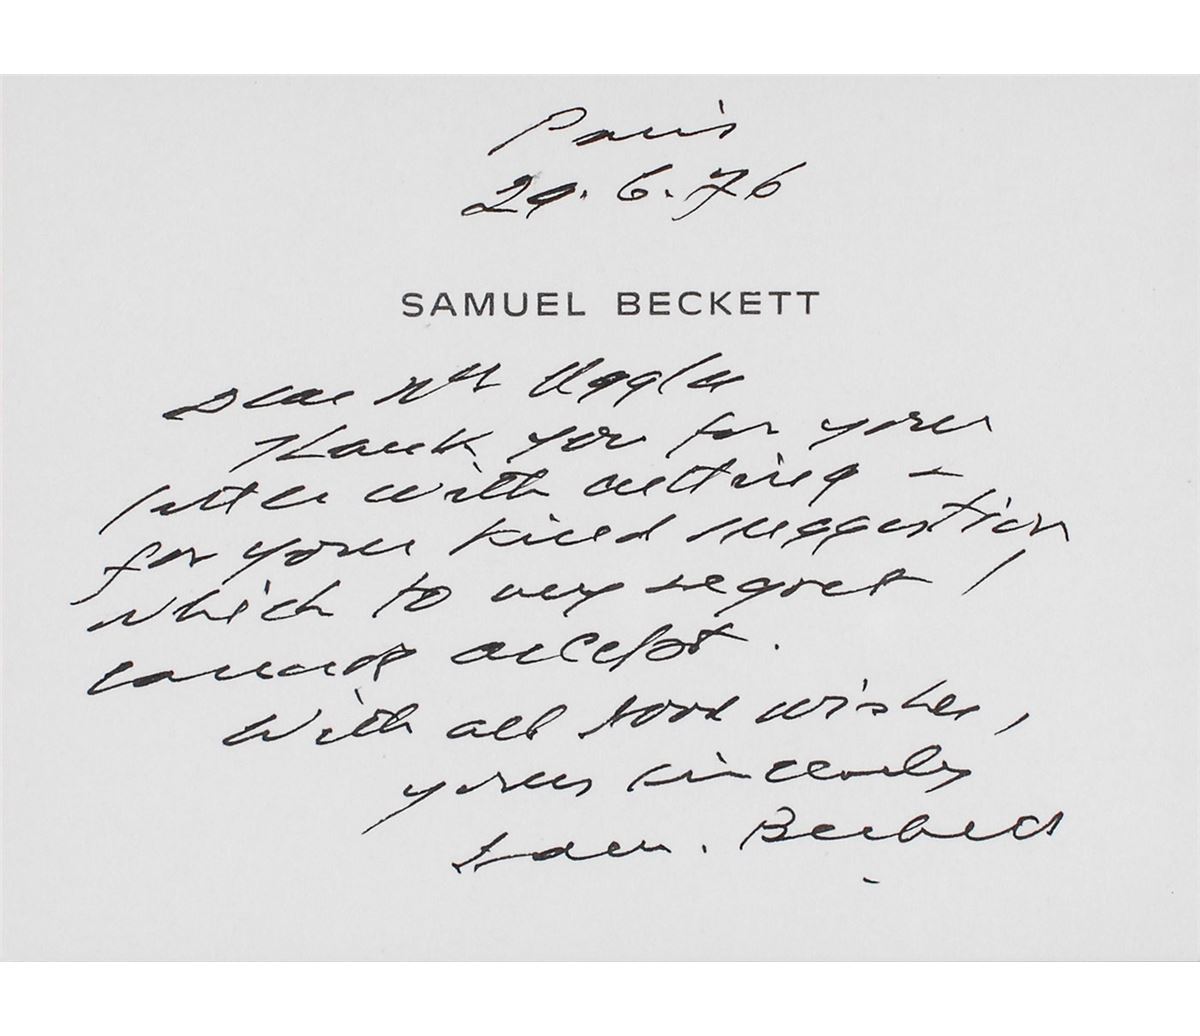 Paris
29.6.76
SAMUEL BECKETT
Dear Mrs Uggla
Thank you for your
letter with cutting –
for your kind suggestion
which to my regret I
cannot accept.
With all good wishes,
yours sincerely
Sam. Beckett